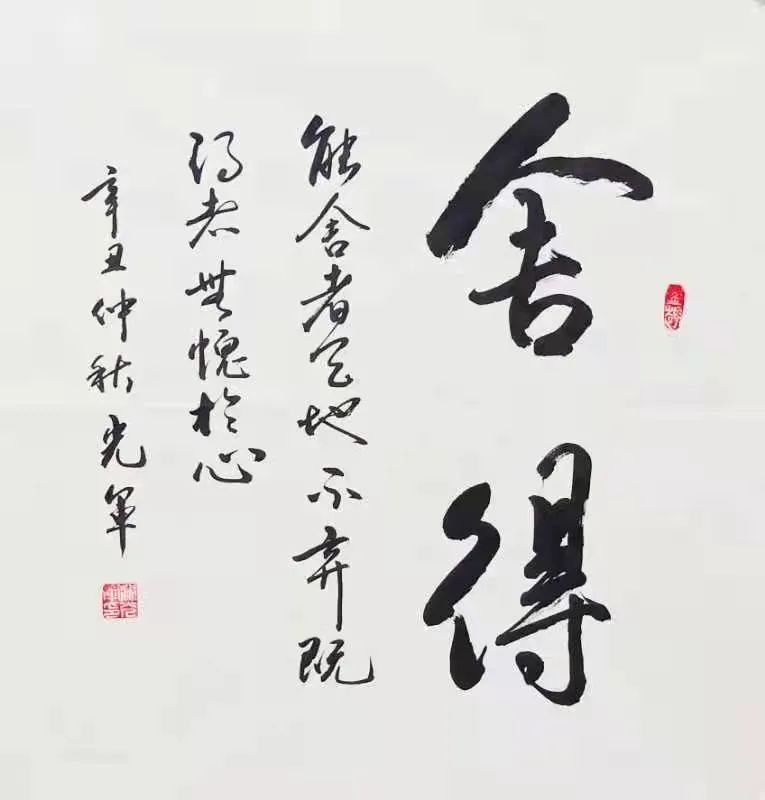 舍得
能舍者天地不弃既
得者无愧於心
辛丑仲秋光军